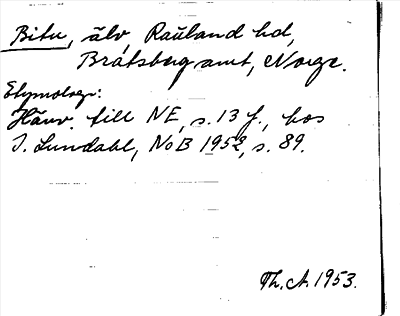 Bitu, älv, Rauland hd,
Bratsberg amt, Norge.
Etymologi:
Hänv. till NE, s. 13 f., hos
I. Lundahl, NoB 1952, s. 89.
Th. A. 1953.